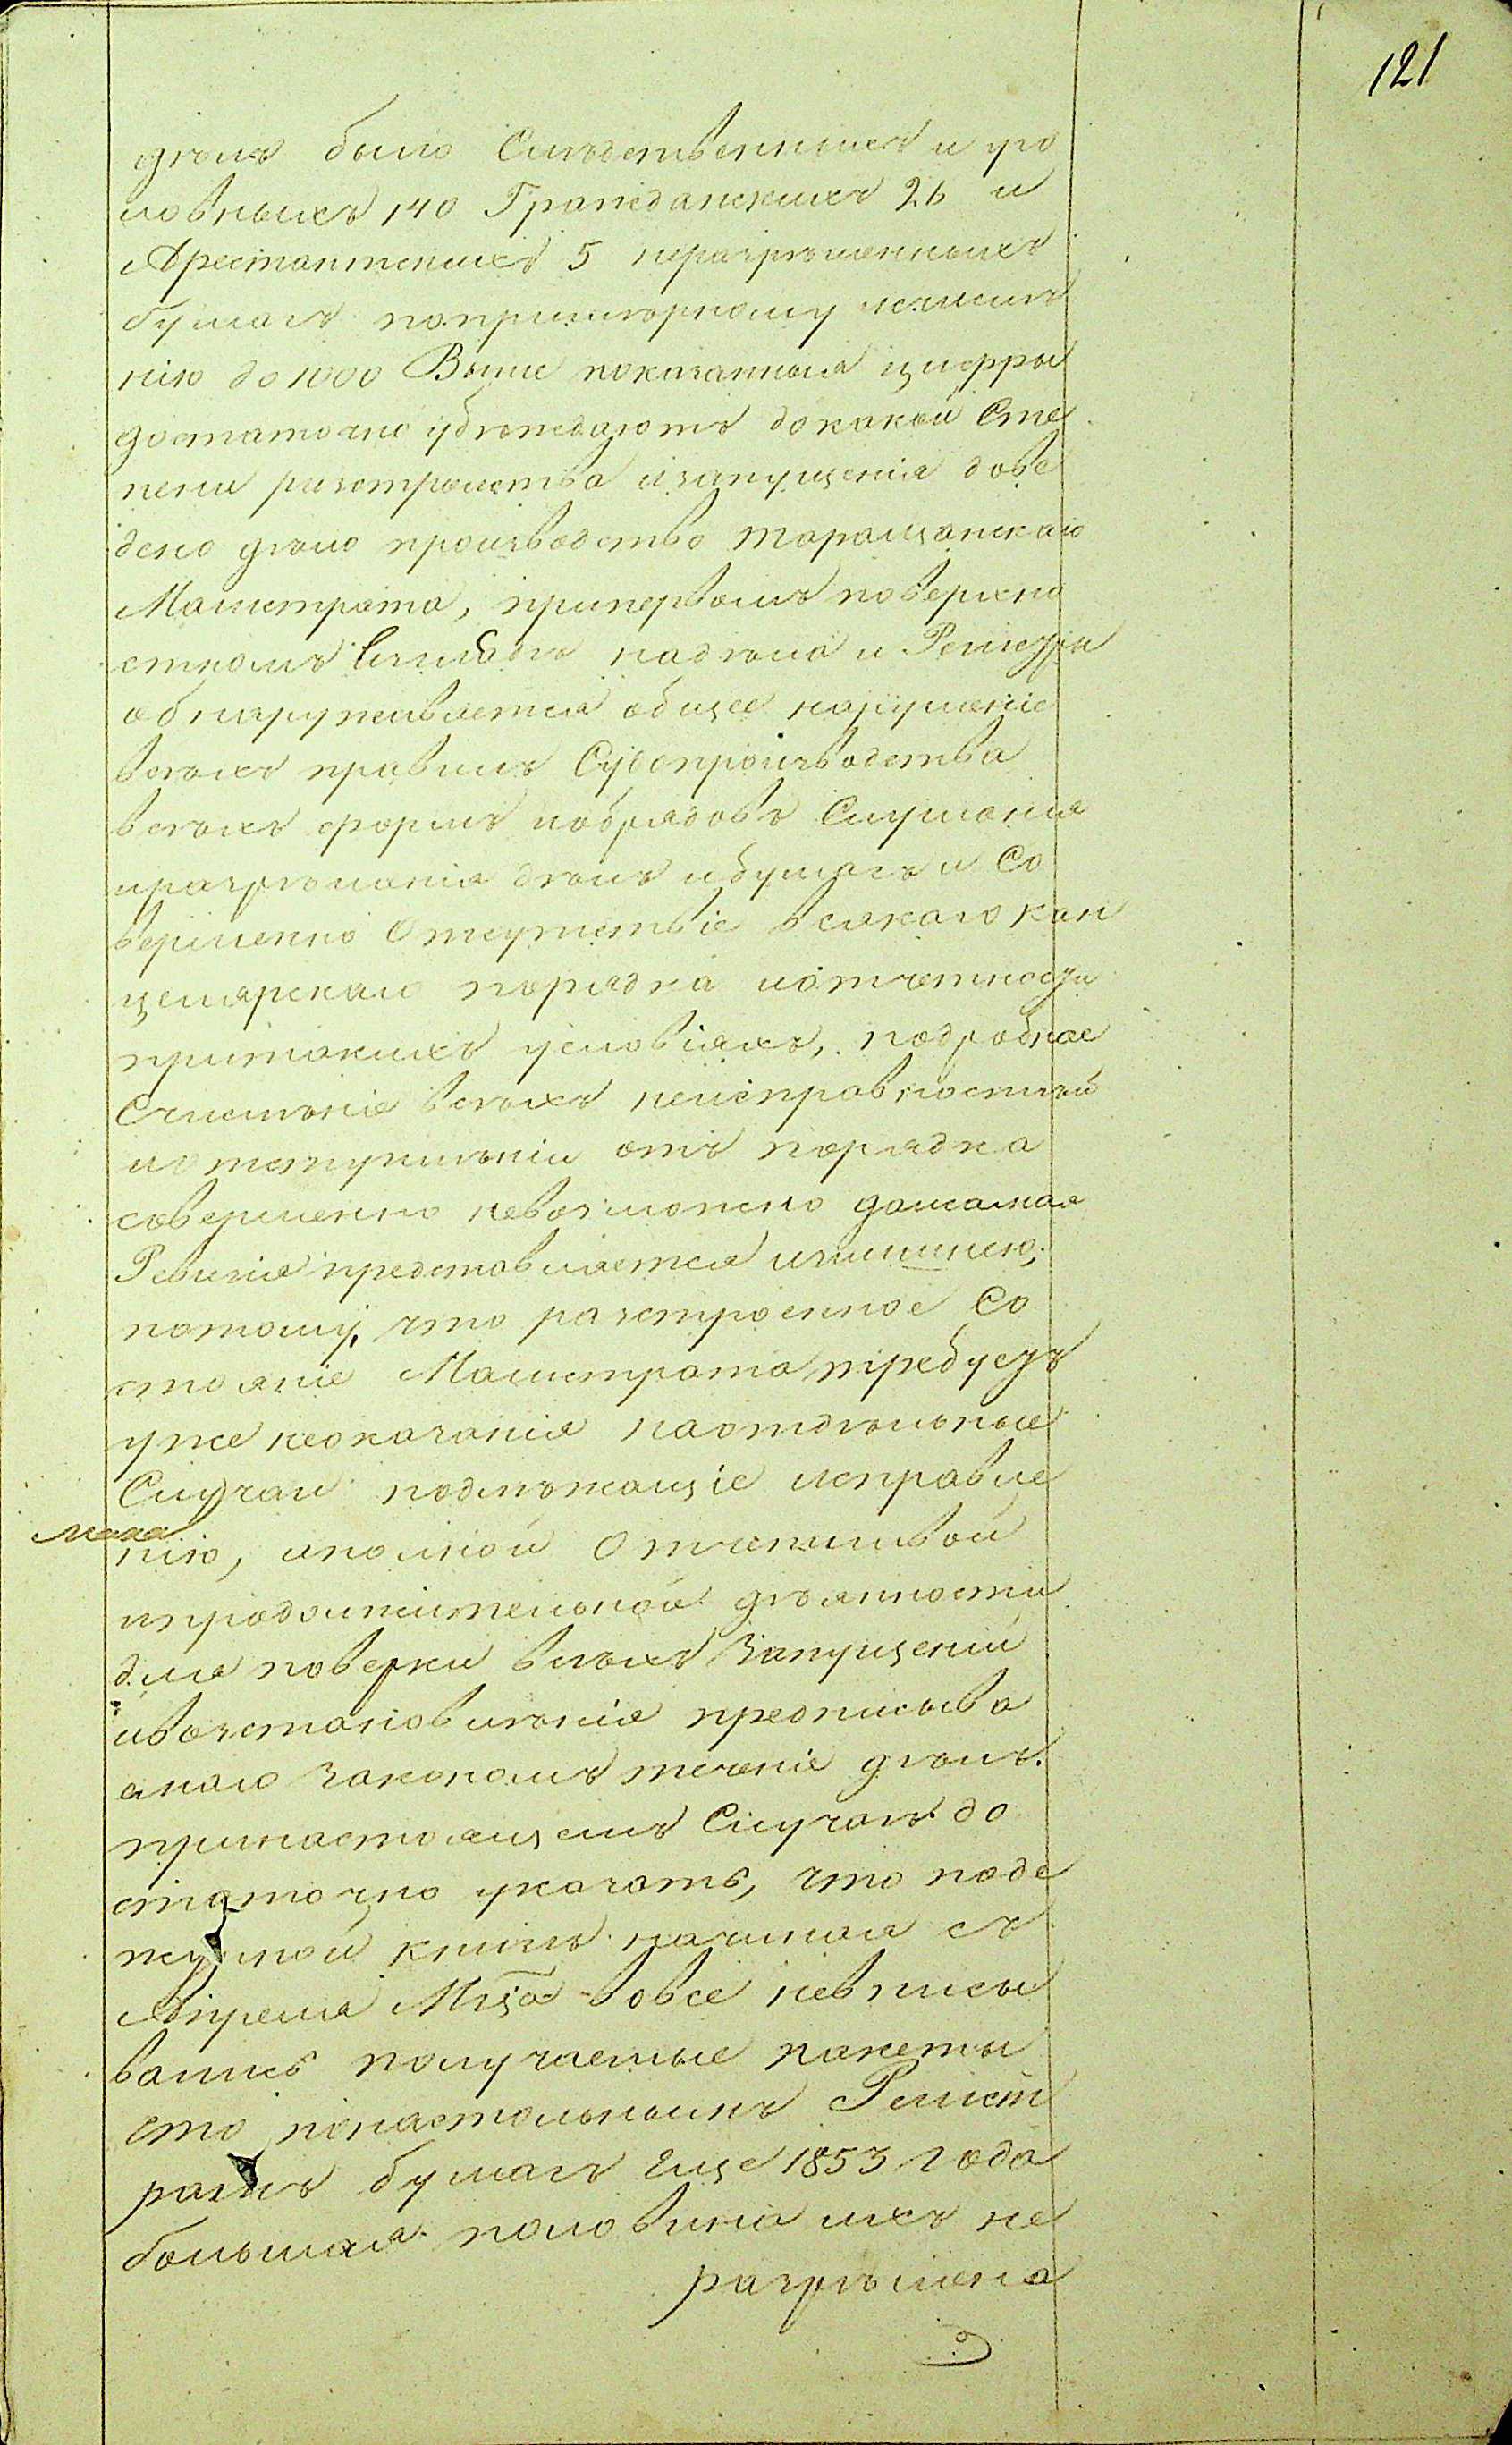 121
дѣлъ было Слѣдственныхъ и уго
ловныхъ 140 Гражданскихъ 26 и
Арестантскихъ 5 неразрѣшенныхъ
бумагъ попримѣрному исчисле
нію до 1000 Выше показанныя цифры
достаточно убѣждаютъ докакой Сте
пени разстройства изапущенія дове
дено дѣло производство Таращанскаго
Магистрата, припервомъ поверхно
стномъ взглядѣ надѣла и Регистры
обнаруживается общее нарушеніе
всѣхъ правилъ Судопроизводства
всѣхъ формъ иобрядовъ Слушанія
иразрѣшенія дѣлъ ибумагъ и Со
вершенно Отсутствіе всякаго кан
целярскаго порядка иотчетности
притакихъ условіяхъ, подробное
Счисленіе всѣхъ неисправностей
иотступленіи отъ порядка
совершенно невозможно дажесамая
Ревизія представляется излишнею,
потому, что разстроенное Со
стояніе Магистрата требуетъ
уже неоказанія наотдѣльные
Случаи подлѣжащіе исправле
нію, аполной Отчетливой
ипродолжительной дѣянности
для поверки всѣхъ Запущеній
ивозстановленія предписыва
емаго Закономъ теченіе дѣлъ.
принастоящемъ Случаѣ до
статочно указать, что поде
журной книгѣ начиная съ
Апреля Мца вовсе невписы
вались получаемые пакеты
что понастольнымъ Регист
рамъ бумагъ Еще 1853 года
большая половина ихъ не
разрѣшена